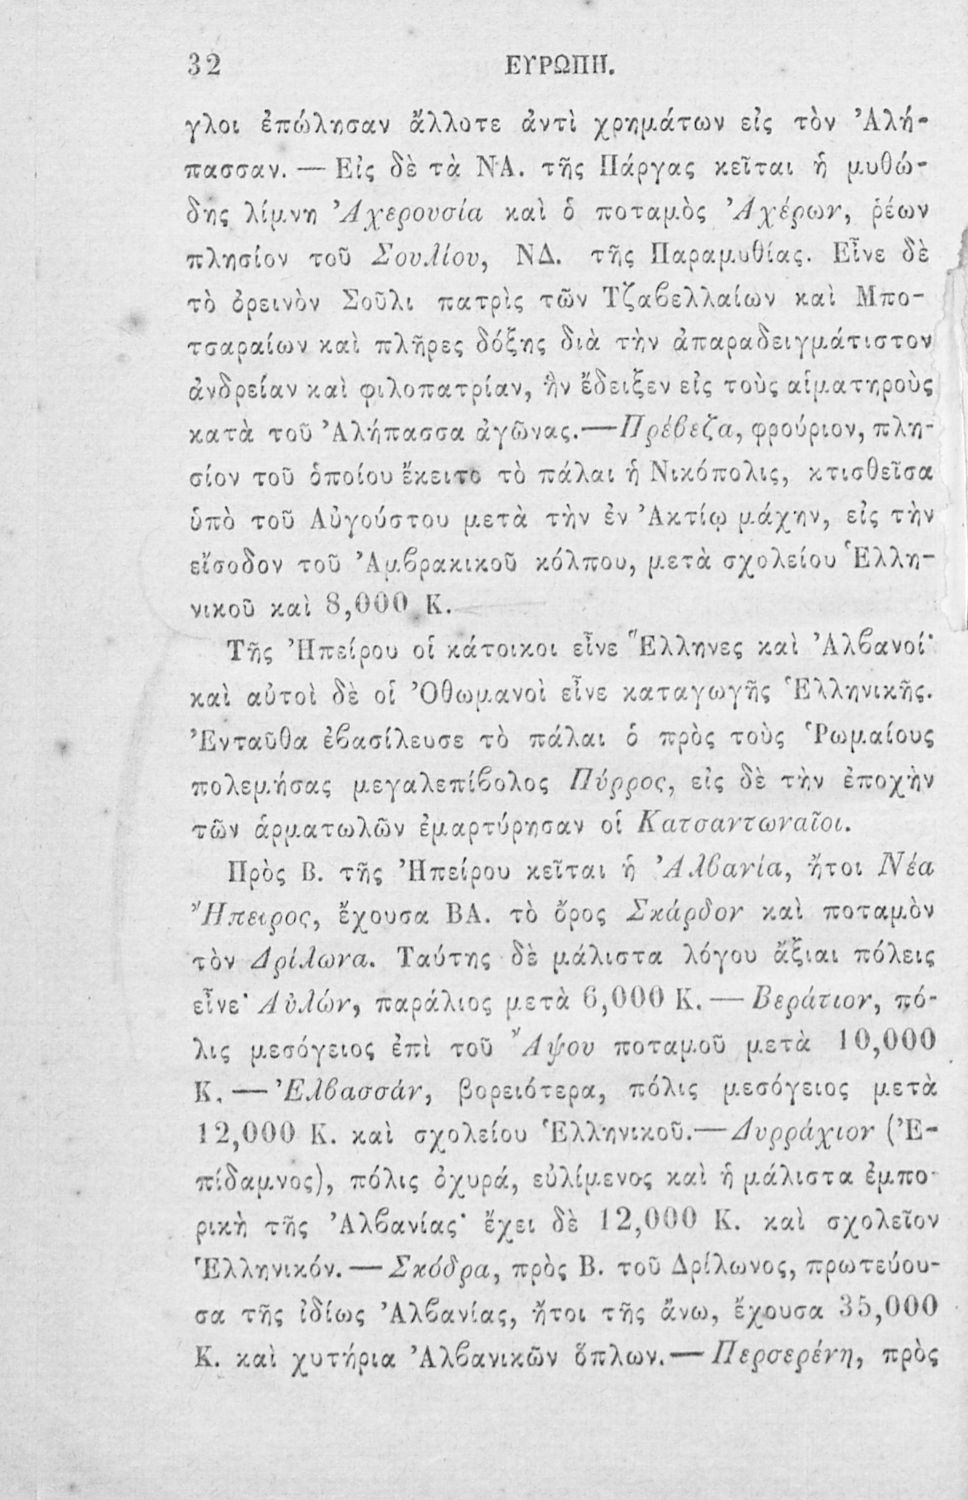 32 ΕΥΡΩΠΗ.
γλοι ἐπώλησαν ἄλλοτε ἀντὶ χρημάτων εἰς τὸν Ἀλή-
πασσαν. — Εἰς δὲ τὰ ΝΑ. τῆς Πάργας κεῖται ἡ μυθώ-
δης λίμνη Ἀχερουσία καὶ ὁ ποταμὸς Ἀχέρων, ῥέων
πλησίον τοῦ Σουλίου, ΝΔ. τῆς Παραμυθίας. Εἶνε δὲ
τὸ ὀρεινὸν Σοῦλι πατρὶς τῶν Τζαβελλαίων καὶ Μπο-
τσαραίων καὶ πλῆρες δόξης διὰ τὴν ἀπαραδειγμάτιστον
ἀνδρείαν καὶ φιλοπατρίαν, ἣν ἔδειξεν εἰς τοὺς αἱματηροὺς
κατὰ τοῦ Ἀλήπασσα ἀγῶνας.—Πρέβεζα, φρούριον, πλη-
σίον τοῦ ὁποίου ἔκειτο τὸ πάλαι ἡ Νικόπολις, κτισθεῖσα
ὑπὸ τοῦ Αὐγούστου μετὰ τὴν ἐν Ἀκτίῳ μάχην, εἰς τὴν
εἴσοδον τοῦ Ἀμβρακικοῦ κόλπου, μετὰ σχολείου Ἑλλη-
νικοῦ καὶ 8,000 Κ.
Τῆς Ἠπείρου οἱ κάτοικοι εἶνε Ἕλληνες καὶ Ἀλβανοί·
καὶ αὐτοὶ δὲ οἱ Ὀθωμανοὶ εἶνε καταγωγῆς Ἑλληνικῆς.
Ἐνταῦθα ἐβασίλευσε τὸ πάλαι ὁ πρὸς τοὺς Ῥωμαίους
πολεμήσας μεγαλεπίβολος Πύρρος, εἰς δὲ τὴν ἐποχὴν
τῶν ἁρματωλῶν ἐμαρτύρησαν οἱ Κατσαντωναῖοι.
Πρὸς Β. τῆς Ἠπείρου κεῖται ἡ Ἀλβανία, ἤτοι Νέα
Ἤπειρος, ἔχουσα ΒΑ. τὸ ὄρος Σκάρδον καὶ ποταμὸν
τὸν Δρίλωνα. Ταύτης δὲ μάλιστα λόγου ἄξιαι πόλεις
εἶνε· Αὐλών, παράλιος μετὰ 6,000 Κ. — Βεράτιον, πό-
λις μεσόγειος ἐπὶ τοῦ Ἄψου ποταμοῦ μετὰ 10,000
Κ. — Ἐλβασσάν, βορειότερα, πόλις μεσόγειος μετὰ
12,000 Κ. καὶ σχολείου Ἑλληνικοῦ.—Δυρράχιον (Ἐ-
πίδαμνος), πόλις ὀχυρά, εὐλίμενος καὶ ἡ μάλιστα ἐμπο-
ρικὴ τῆς Ἀλβανίας· ἔχει δὲ 12,000 Κ. καὶ σχολεῖον
Ἑλληνικόν. — Σκόδρα, πρὸς Β. τοῦ Δρίλωνος, πρωτεύου-
σα τῆς ἰδίως Ἀλβανίας, ἤτοι τῆς ἄνω, ἔχουσα 35,000
Κ. καὶ χυτήρια Ἀλβανικῶν ὅπλων.— Περσερένη, πρὸς